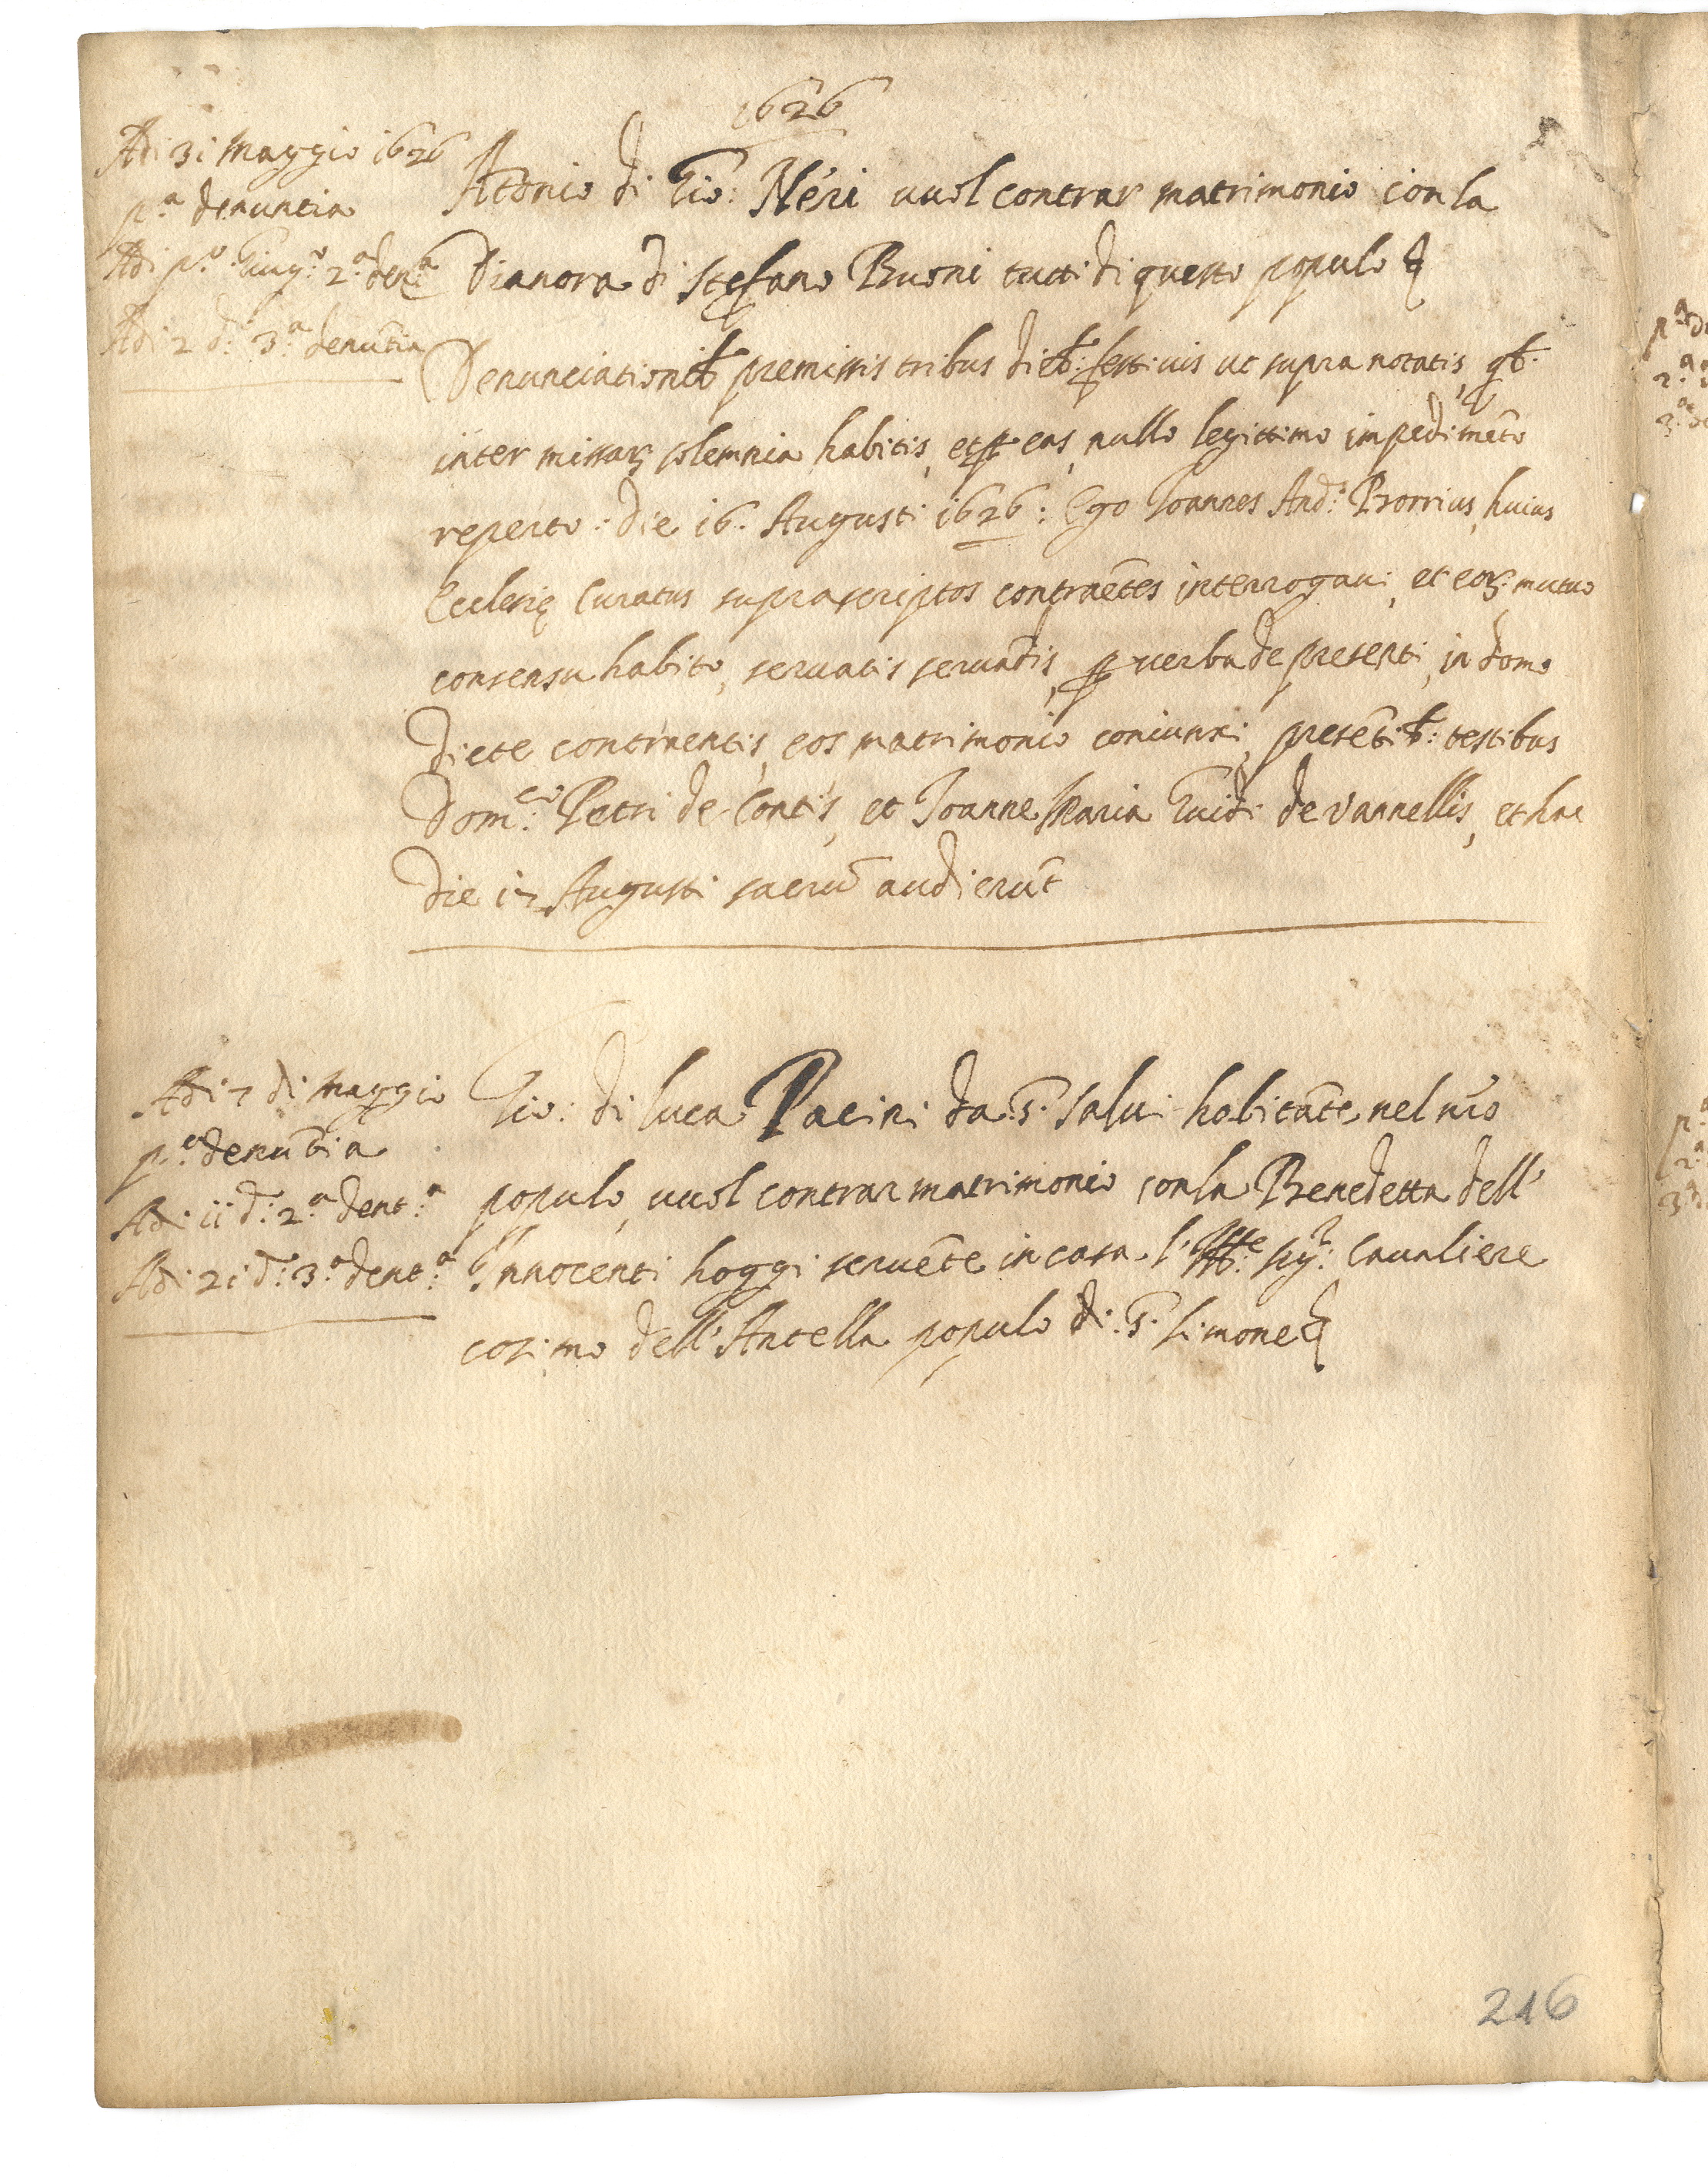 1626
Adi 31 Maggio 1626
p.ª denuntia
Adi p.º Giug.º 2.ª den.ª
Adi 2 d.º 3.ª denũtia
Ãtonio di Gio: Neri vuol contrar matrimonio con la
Dianora di Stefano Buoni tutti di questo populo
Denunciationib premissis tribus dieb: festivis ut supra notatis, qb.
inter missarꝝ solemnia habitis, et ꝑ eas, nullo legittimo impedimẽto
reperto: die 16. Augusti 1626: Ego Joannes And.ˢ huius
Ecclesię Curatus suprascriptos contraẽtes interrogavi, et eorꝝ mutuo
consensu habito, servatis servãdis, ꝑ verba de presenti, in domo
dicte contraentis, eos matrimonio coniunxi, presẽtib: testibus
Dom.co Petri de Contis, et Joanne Maria Guidi de Vannellis, et hac
die 17 Augusti sacrũ audierũt
Adi 7 di Maggio
p.ª denũtia
Adi 11 d.º 2.ª dent.ª
Adi 21 d.º 3.ª dent.ª
Gio: di luca Pacini da S. Salvi habitãte nel nr̃o
populo, vuol contrar matrimonio con la Benedetta dell'
Innocenti hoggi servẽte in casa l' sig.r Cavaliere
cosimo dell'Antella populo di S. Simone
216